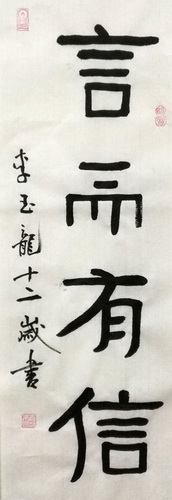 言而有信
李玉龍十二歲書